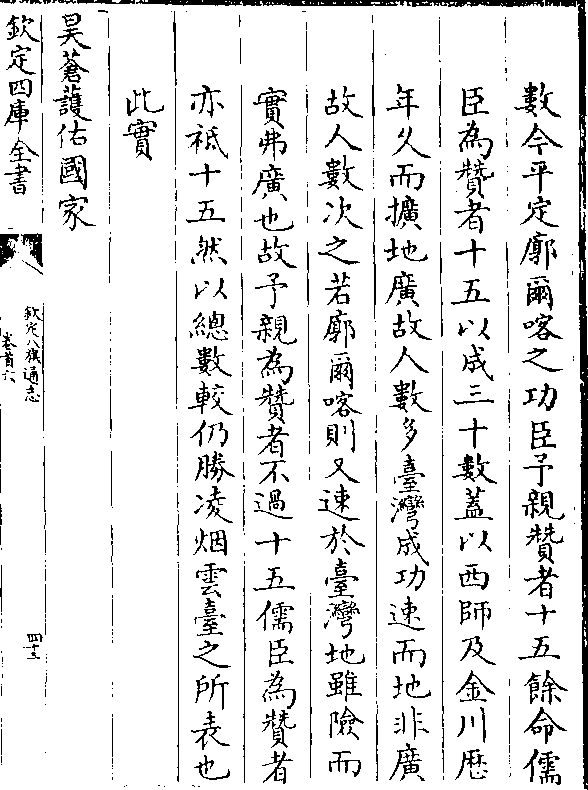 數今平定廓爾喀之功臣予親贊者十五餘命儒
臣為贊者十五以成三十數蓋以西師及金川歴
年久而擴地廣故人數多臺灣成功速而地非廣
故人數次之若廓爾喀則又速於臺灣地雖險而
實弗廣也故予親為贊者不過十五儒臣為贊者
亦祗十五然以總數較仍勝凌烟雲臺之所表也
此實
昊蒼護佑國家
欽定四庫全書
欽定八旗通志
卷首六
四十三